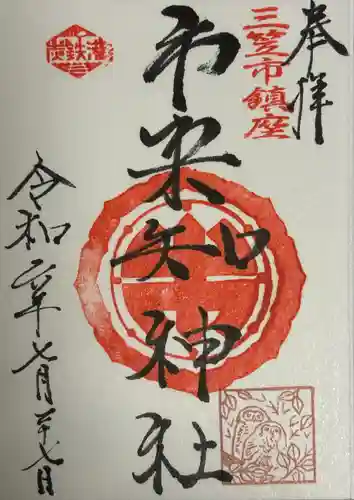 奉拝
三笠市鎮座
市来知神社
令和六年七月二十七日